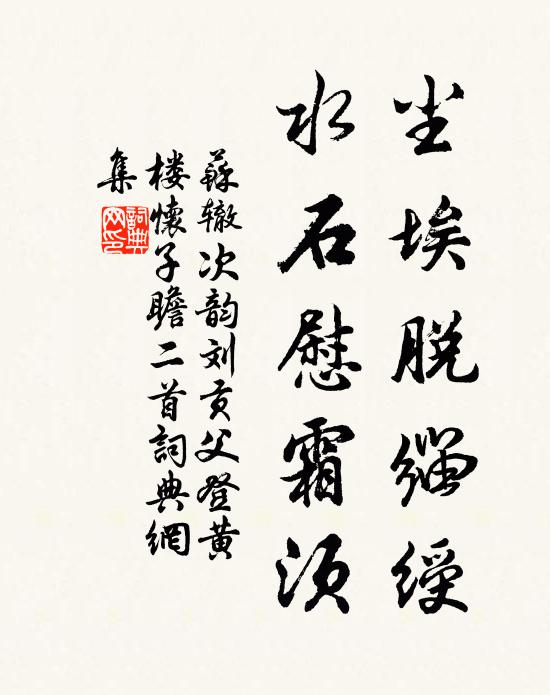 尘埃脱缁绶
水石慰霜须
苏辙次韵刘贡父登黄
楼懷子瞻二首詞典網
集
詞典
网印